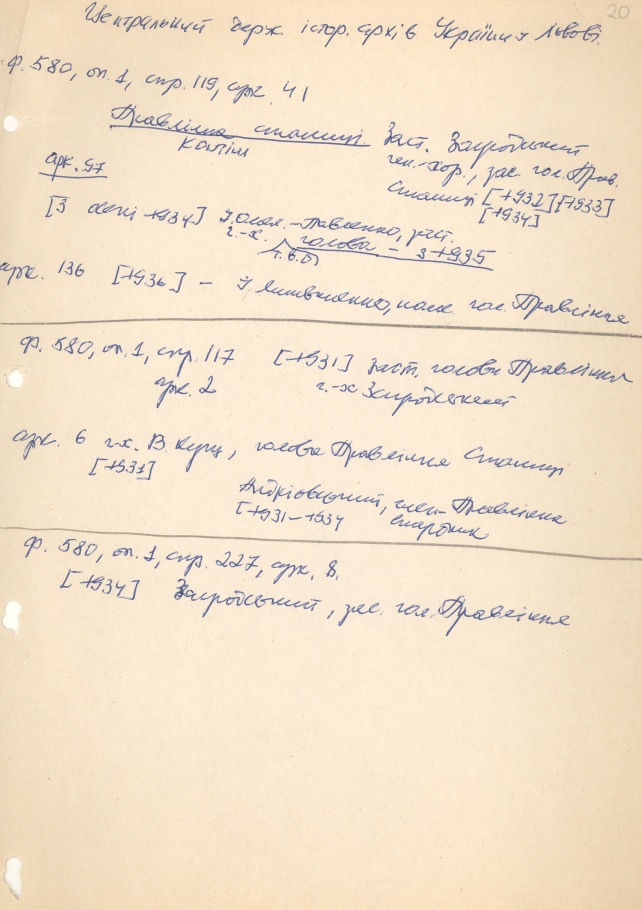 20
Центральний держ. істор. архів України у Львові.
Ф. 580, оп. 1, спр. 119, арк. 41
Правління станиці Заст. Загродський
Каліш ген.-хор., зас. гол. Прав.
арк. 97 Станиці [1932] [1933]
[1934]
[З осені 1934] І. Омел.-Павленко, заст.
г.-х. голова – з 1935
т.в.о
арк. 136 [1936] – гол. Правління
Ф. 580, оп. 1, спр. 117 [1931] Заст. голови Правління
арк. 2 г.-х Загродський
арк. 6 г-х. В. Кущ, голова Правління Станиці
[1931]
член Правління
[1931–1934
Ф. 580, оп. 1, спр. 227, арк. 8.
[1934] Загродський, зас. гол. Правління